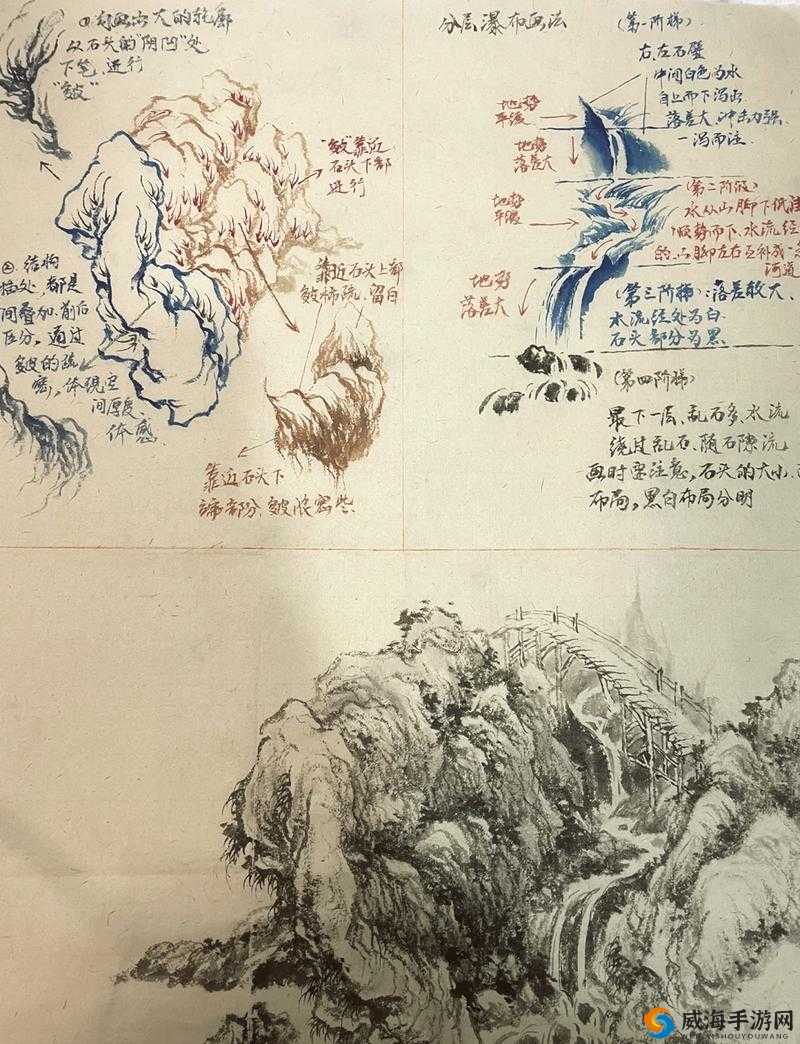 ①勾画出大的轮廓
从石头的"阴凹"处
下笔、进行
"皴"
"皴"靠近
石头下部
进行
②、结构
都是
间叠加、前后
区分、通过
皴的疏
密、体现空
间厚度、
体感
靠近石头上部
皴稀疏、留白
靠近石头下
部分、皴浓密些.
分层瀑布画法
(第一阶梯)
右、左石壁
中间白色为水
自上而下泻出
落差大、冲击力强、
一泻而注.
地势
平缓
地势
落差大
(第二阶段)
水从山脚下低洼
顺势而下、水流经
的、山脚左右互补成
河道
地势
平缓
地势
落差大
(第三阶梯):落差较大、
水流经处为白.
石头部分为黑.
(第四阶梯)
最下一层、乱石多、水流
绕过乱石、随石隙流
画时要注意,石头的大小、
布局,黑白布局分明
威海手游网
WEIHAISHOUYOUWANG